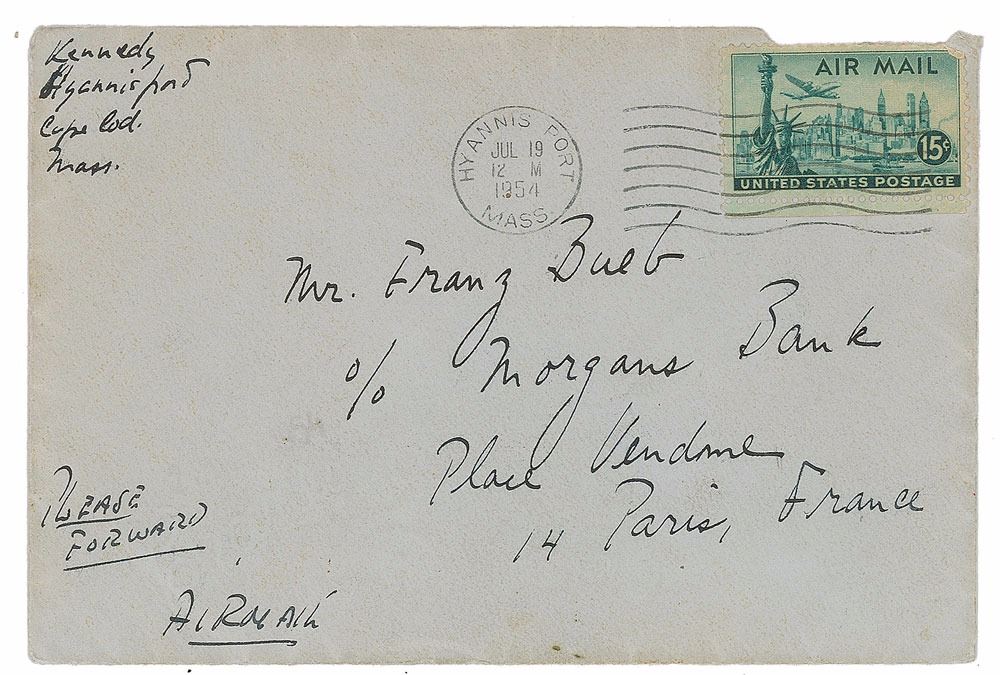 Kennedy
Hyannisport
Cape Cod.
Mass.
AIR MAIL
15¢
UNITED STATES POSTAGE
HYANNIS PORT
JUL 19
12 M
1954
MASS.
Mr. Franz Bueb
% Morgans Bank
Place Vendome
14 Paris, France
PLEASE
FORWARD
AIRMAIL